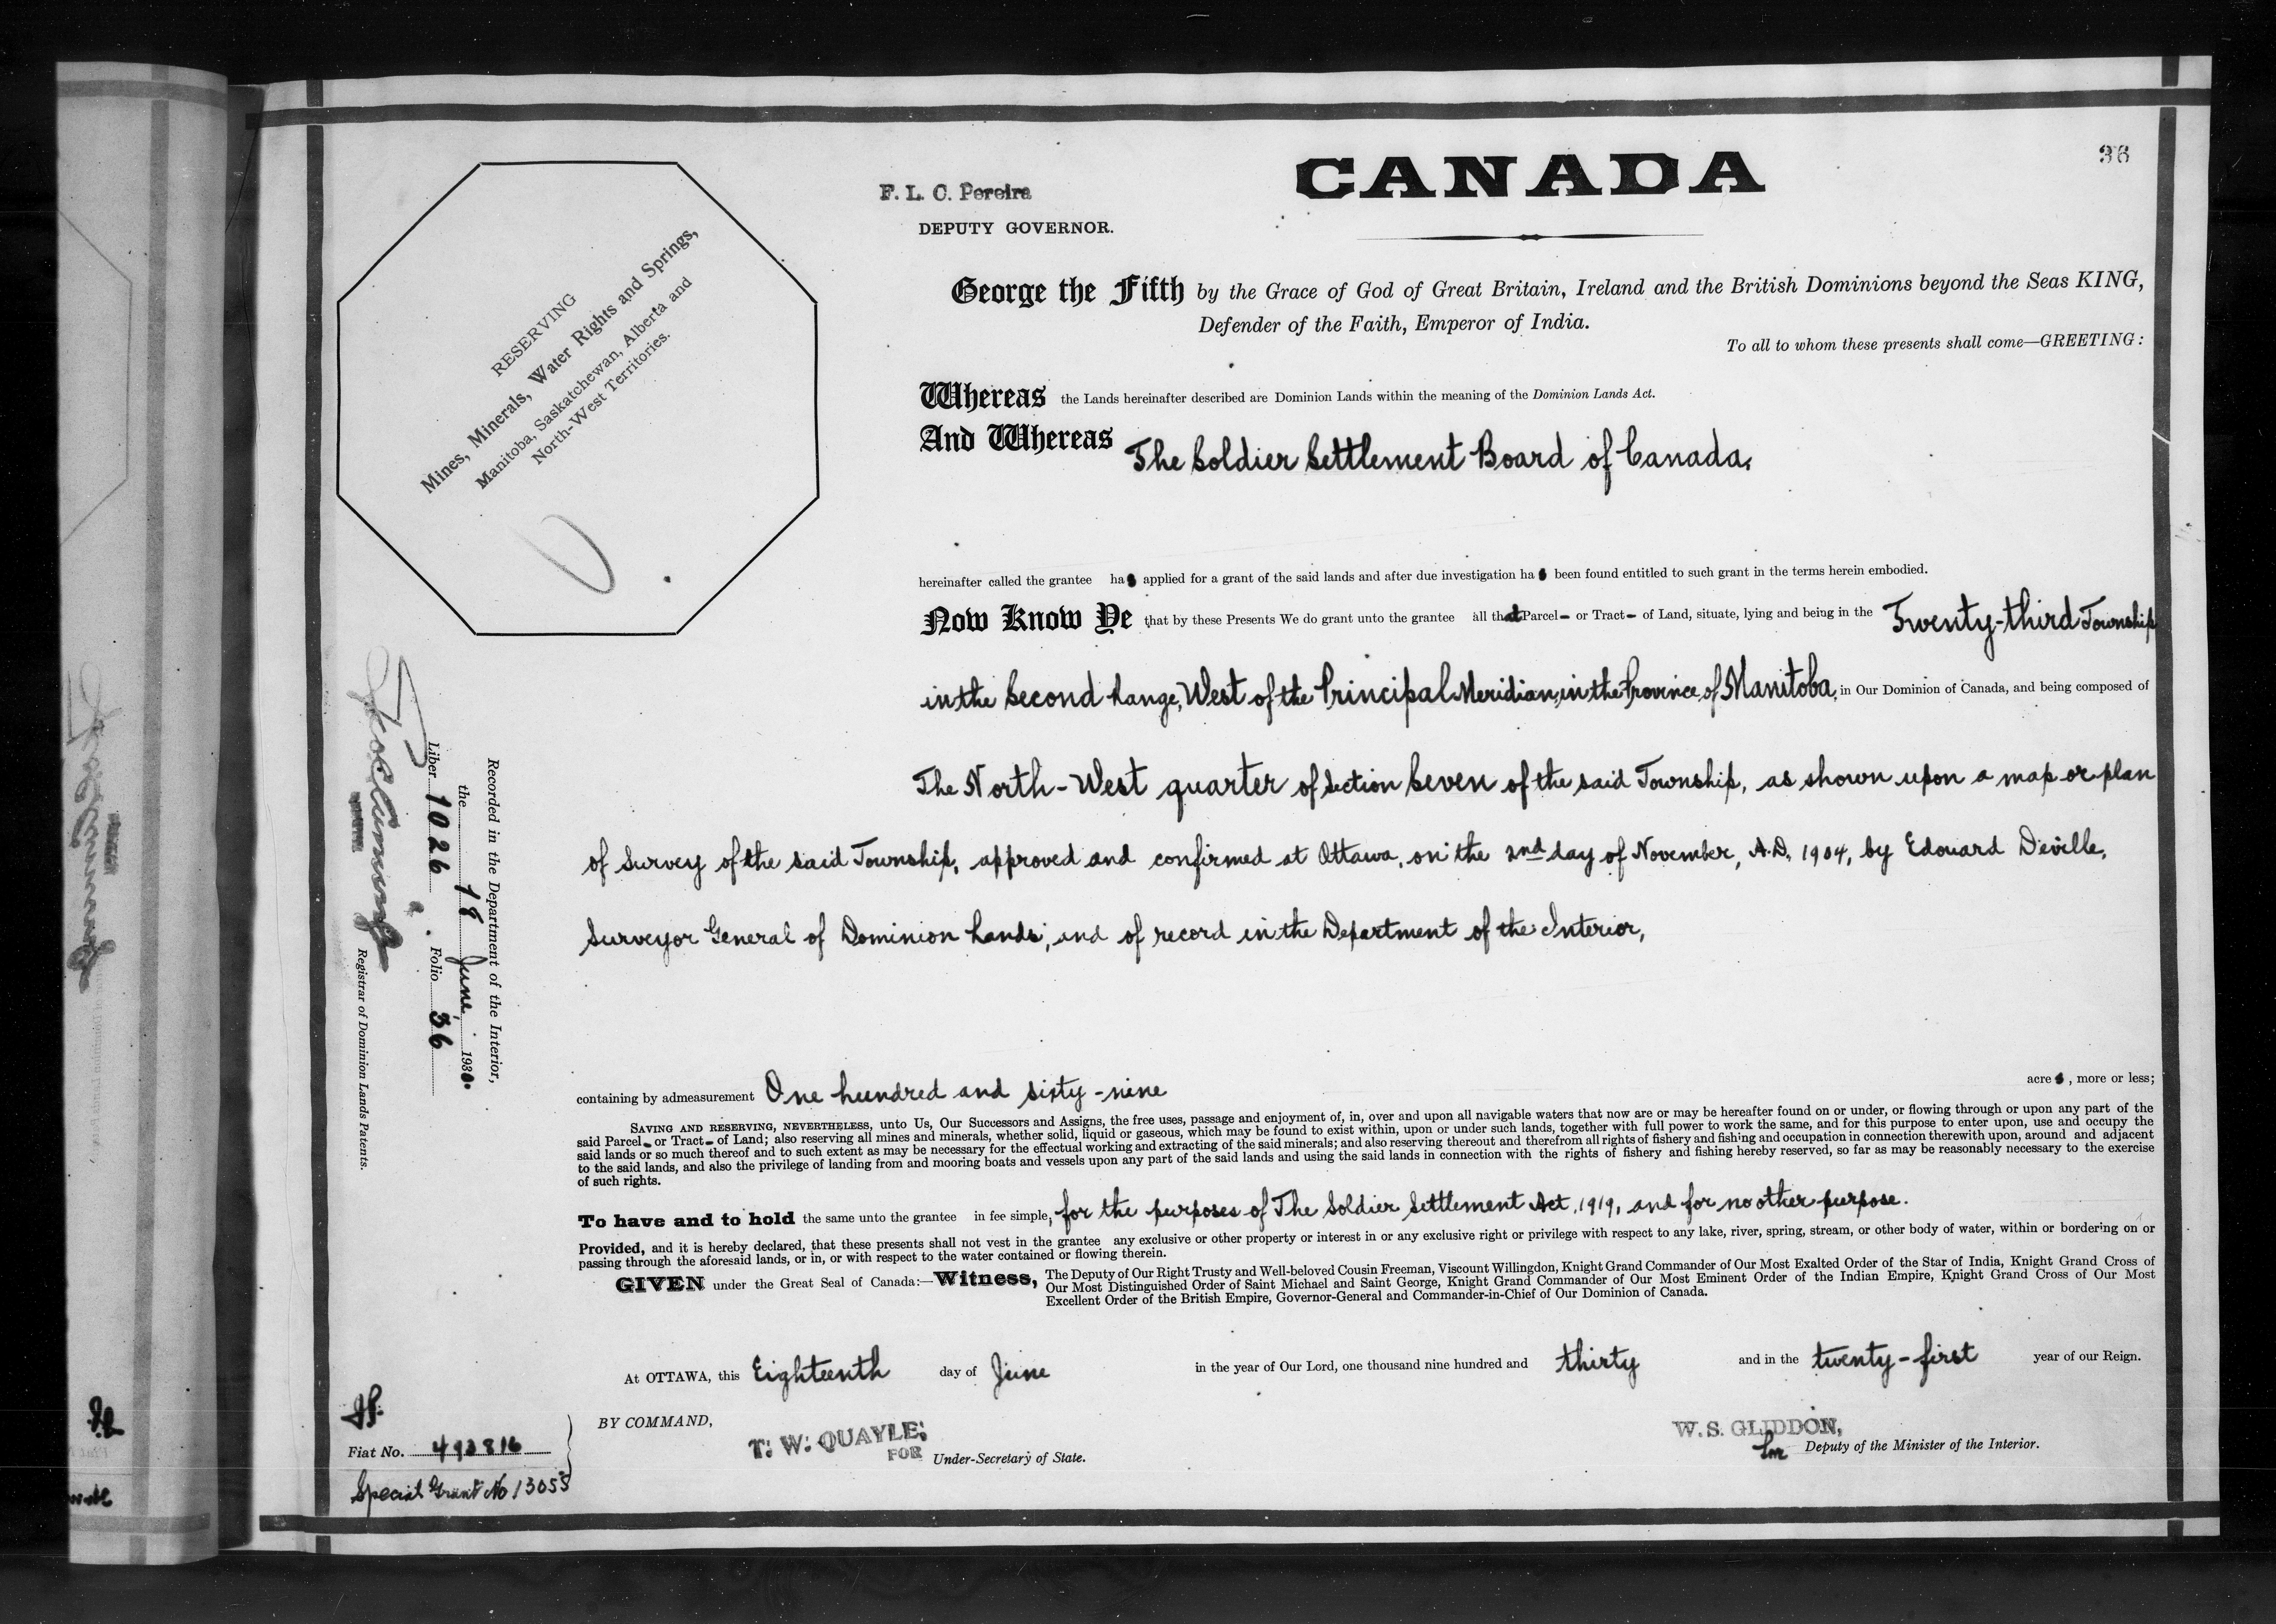 36
CANADA
F. L. C. Pereira
DEPUTY GOVERNOR.
RESERVING
Mines, Minerals, Water Rights and Springs,
Manitoba, Saskatchewan, Alberta and
North-West Territories.
George the Fifth by the Grace of God of Great Britain, Ireland and the British Dominions beyond the Seas KING,
Defender of the Faith, Emperor of India.
To all to whom these presents shall come—GREETING:
Whereas the Lands hereinafter described are Dominion Lands within the meaning of the Dominion Lands Act.
And Whereas The Soldier Settlement Board of Canada,
hereinafter called the grantee has applied for a grant of the said lands and after due investigation has been found entitled to such grant in the terms herein embodied.
Now Know Ye that by these Presents We do grant unto the grantee all that Parcel- or Tract- of Land, situate, lying and being in the Twenty-third Township
in the Second Range, West of the Principal Meridian, in the Province of Manitoba, in Our Dominion of Canada, and being composed of
The North-West quarter of Section Seven of the said Township, as shown upon a map or plan
of Survey of the said Township, approved and confirmed at Ottawa, on the 2nd day of November, A.D. 1904, by Edouard Deville,
Surveyor General of Dominion Lands; and of record in the Department of the Interior,
containing by admeasurement One hundred and sixty-nine acres, more or less;
SAVING AND RESERVING, NEVERTHELESS, unto Us, Our Successors and Assigns, the free uses, passage and enjoyment of, in, over and upon all navigable waters that now are or may be hereafter found on or under, or flowing through or upon any part of the
said Parcel- or Tract- of Land; also reserving all mines and minerals, whether solid, liquid or gaseous, which may be found to exist within, upon or under such lands, together with full power to work the same, and for this purpose to enter upon, use and occupy the
said lands or so much thereof and to such extent as may be necessary for the effectual working and extracting of the said minerals; and also reserving thereout and therefrom all rights of fishery and fishing and occupation in connection therewith upon, around and adjacent
to the said lands, and also the privilege of landing from and mooring boats and vessels upon any part of the said lands and using the said lands in connection with the rights of fishery and fishing hereby reserved, so far as may be reasonably necessary to the exercise
of such rights.
To have and to hold the same unto the grantee in fee simple, for the purposes of The Soldier Settlement Act, 1919, and for no other purpose.
Provided, and it is hereby declared, that these presents shall not vest in the grantee any exclusive or other property or interest in or any exclusive right or privilege with respect to any lake, river, spring, stream, or other body of water, within or bordering on or
passing through the aforesaid lands, or in, or with respect to the water contained or flowing therein.
GIVEN under the Great Seal of Canada:—Witness, The Deputy of Our Right Trusty and Well-beloved Cousin Freeman, Viscount Willingdon, Knight Grand Commander of Our Most Exalted Order of the Star of India, Knight Grand Cross of
Our Most Distinguished Order of Saint Michael and Saint George, Knight Grand Commander of Our Most Eminent Order of the Indian Empire, Knight Grand Cross of Our Most
Excellent Order of the British Empire, Governor-General and Commander-in-Chief of Our Dominion of Canada.
At OTTAWA, this Eighteenth day of June in the year of Our Lord, one thousand nine hundred and thirty and in the twenty-first year of our Reign.
BY COMMAND,
T. W. QUAYLE,
FOR Under-Secretary of State.
W. S. GLIDDON,
for Deputy of the Minister of the Interior.
Recorded in the Department of the Interior,
the 18 June 1930.
Liber 1026 Folio 36
Registrar of Dominion Lands Patents.
Fiat No.
Special Grant No 13055